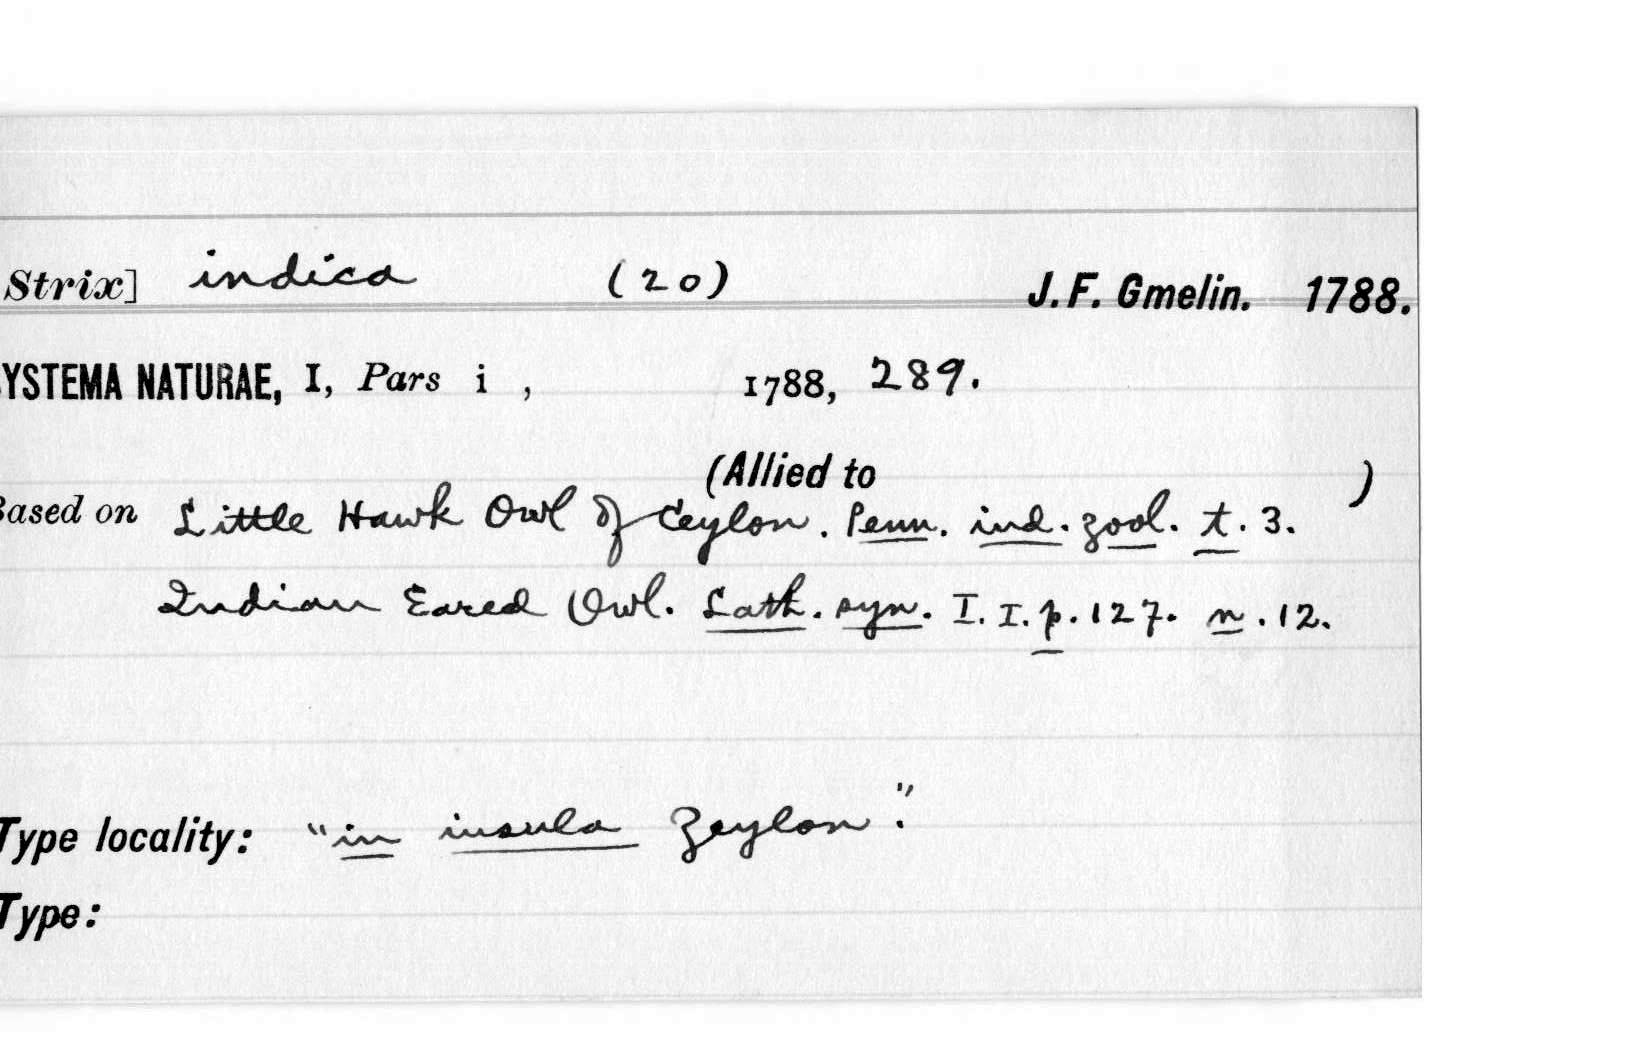 Strix] indica (20) J. F. Gmelin. 1788.
YSTEMA NATURAE, I, Pars i , 1788, 289.
(Allied to )
Based on Little Hawk Owl of Ceylon. Penn. ind. zool. t. 3.
Indian Eared Owl. Lath. syn. I. I. p. 127. n. 12.
Type locality: "in insula Zeylon".
Type: